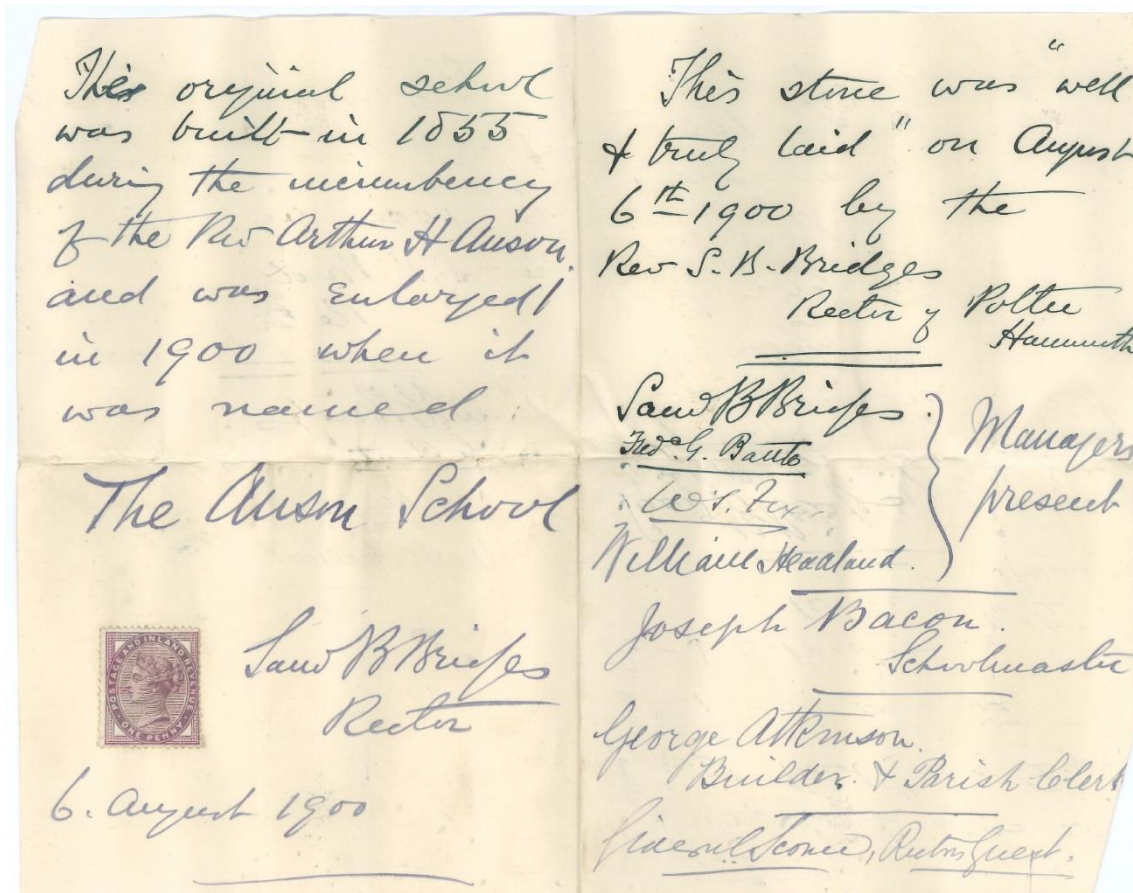 This original school
was built in 1855
during the incumbency
of the Rev Arthur H Anson
and was enlarged
in 1900 when it
was named
The Anson School
POSTAGE AND INLAND REVENUE
ONE PENNY
Saml B Bridges
Rector
6. August 1900
This stone was "well
& truly laid" on August
6th 1900 by the
Rev S. B. Bridges
Rector of Potter
Hanworth
Saml B Bridges.
Managers
present
Fredc. G.
W. S. Fox
William Headland.
Joseph Bacon.
Schoolmaster
George Atkinson.
Builder. & Parish Clerk
Rectors Guest.